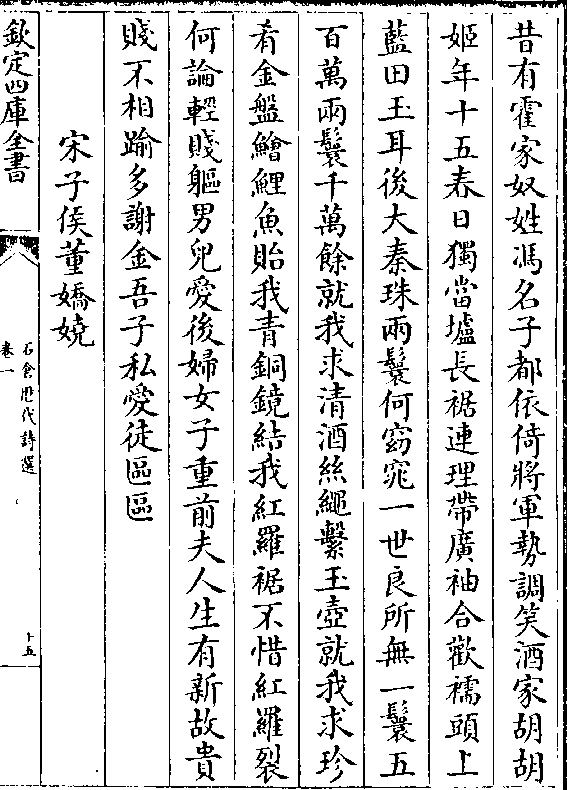 昔有霍家奴姓馮名子都依倚將軍勢調笑酒家胡胡
姬年十五春日獨當壚長裾連理帶廣袖合歡襦頭上
藍田玉耳後大秦珠兩鬟何窈窕一世良所無一鬟五
百萬兩鬟千萬餘就我求清酒絲繩繫玉壺就我求珍
肴金盤鱠鯉魚貽我青銅鏡結我紅羅裾不惜紅羅裂
何論輕賤軀男兒愛後婦女子重前夫人生有新故貴
賤不相踰多謝金吾子私愛徒區區
宋子侯董嬌嬈
欽定四庫全書
石倉歷代詩選
卷一
十五